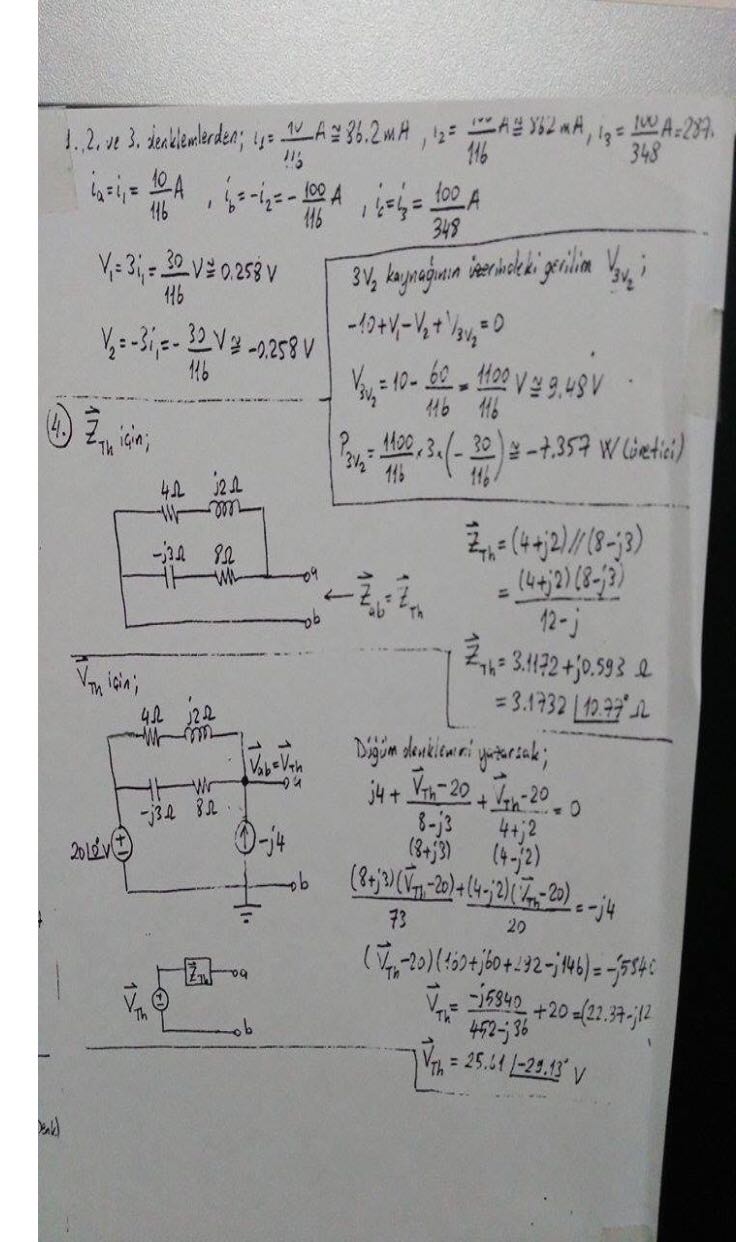 1., 2. ve 3. denklemlerden; i₁= 10/116 A ≅ 86.2 mA , i₂= 100/116 A ≅ 862 mA , i₃= 100/348 A = 287.
iₐ=i₁= 10/116 A , i_b=-i₂=- 100/116 A , i_c=i₃= 100/348 A
V₁=3i₁= 30/116 V ≅ 0.258 V
V₂=-3i₁=- 30/116 V ≅ -0.258 V
3V₂ kaynağının üzerindeki gerilim V_3V₂ ;
-10+V₁-V₂+V_3V₂=0
V_3V₂=10- 60/116 = 1100/116 V ≅ 9.48 V
P_3V₂= 1100/116 × 3 × (- 30/116) ≅ -7.357 W (üretici)
4. Z⃗_Th için;
4Ω j2Ω
-j3Ω 8Ω
a
b
← Z⃗_ab=Z⃗_Th
Z⃗_Th=(4+j2)//(8-j3)
= (4+j2)(8-j3)/12-j
Z⃗_Th=3.1172+j0.593 Ω
=3.1732 ∠10.77° Ω
V⃗_Th için;
4Ω j2Ω
V⃗_ab=V⃗_Th
a
-j3Ω 8Ω
20∠0° V
-j4
b
Düğüm denklemini yazarsak;
j4+ V⃗_Th-20/8-j3 + V⃗_Th-20/4+j2 =0
(8+j3) (4-j2)
(8+j3)(V⃗_Th-20)/73 + (4-j2)(V⃗_Th-20)/20 =-j4
(V⃗_Th-20)(160+j60+292-j146)=-j5840
V⃗_Th= -j5840/452-j36 +20=(22.37-j12
V⃗_Th=25.61 ∠-29.13° V
Z⃗_Th
a
V⃗_Th
b
Denk)